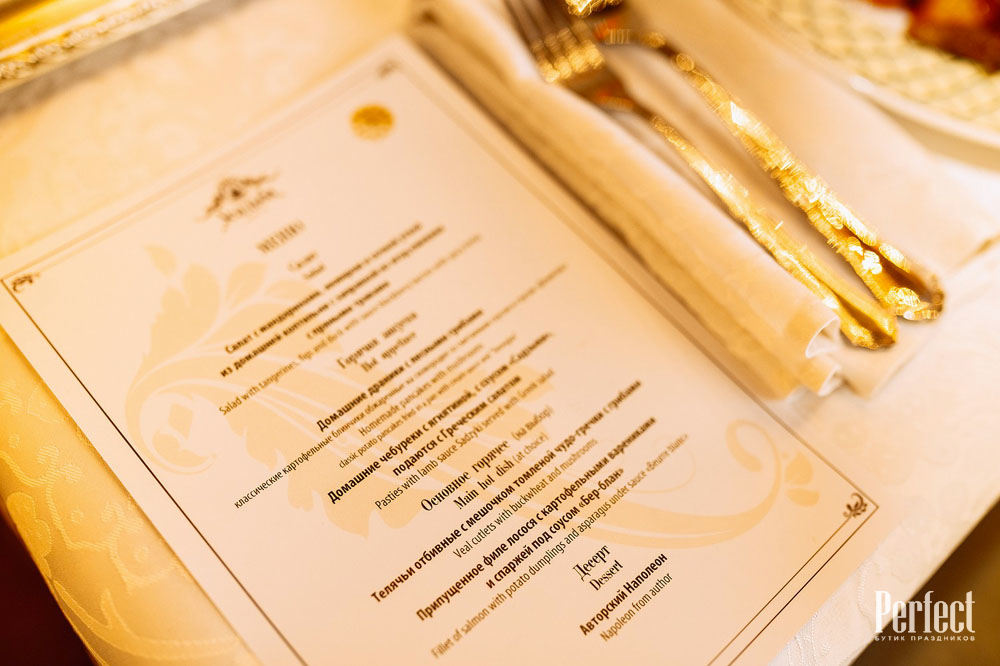 МЕНЮ
Салат
Salad
Салат с мандаринами,
из домашней
с пряными травами
Salad with tangerines, figs and
Горячая закуска
Hot appetizer
Домашние драники с лесными грибами
классические картофельные блинчики обжаренные на сковороде
Homemade pancakes with mushrooms
classic potato pancakes fried in a pan with
Домашние чебуреки с ягнятиной, с соусом «Садзики»,
подаются с Греческим салатом
Pasties with lamb sauce Sadzyki served with Greek salat
Основное горячее (на выбор)
Main hot dish (at choice)
Телячьи отбивные с мешочком томленой чудо-гречки с грибами
Veal cutlets with buckwheat and mushrooms
Припущенное филе лосося с картофельными варениками
и спаржей под соусом «Бер-блан»
Fillet of salmon with potato dumplings and asparagus under sauce «Beurre blanc»
Десерт
Dessert
Авторский Наполеон
Napoleon from author
Perfect
БУТИК ПРАЗДНИКОВ